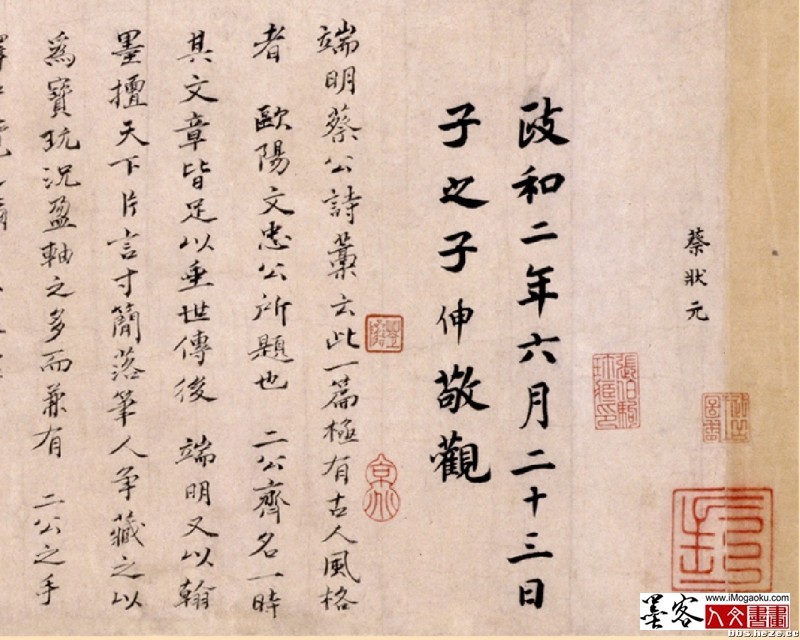 蔡狀元
政和二年六月二十三日
子之子伸敬觀
端明蔡公詩藁云此一篇極有古人風格
者 歐陽文忠公所題也 二公齊名一時
其文章皆足以垂世傳後 端明又以翰
墨擅天下片言寸簡落筆人爭藏之以
爲寶玩況盈軸之多而兼有 二公之手
張伯駒
珍藏印
墨客
人文書畫
www.iMogaoku.com
bbs.heze.cc